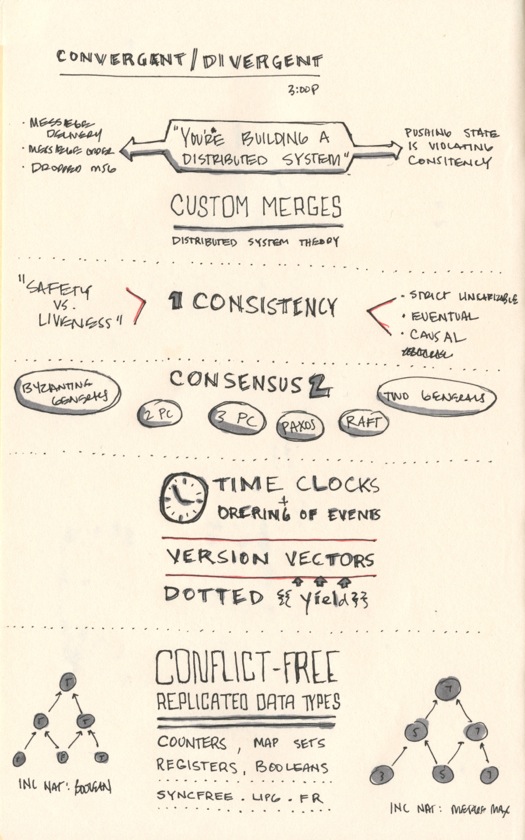 CONVERGENT/DIVERGENT
3:00P
· MESSAGE
DELIVERY
· MESSAGE ORDER
· DROPPED MSG
"YOU'RE BUILDING A
DISTRIBUTED SYSTEM"
PUSHING STATE
IS VIOLATING
CONSITENCY
CUSTOM MERGES
DISTRIBUTED SYSTEM THEORY
"SAFETY
VS.
LIVENESS"
1 CONSISTENCY
· STRICT LINEARIZABLE
· EVENTUAL
· CAUSAL
CONSENSUS 2
BYZANTING
GENERALS
2 PC
3 PC
PAXOS
RAFT
TWO GENERALS
TIME CLOCKS
+
ORERING OF EVENTS
VERSION VECTORS
DOTTED {{ yield}}
CONFLICT-FREE
REPLICATED DATA TYPES
COUNTERS, MAP SETS
REGISTERS, BOOLEANS
SYNCFREE.LIP6.FR
INC NAT: BOOLEAN
7
5
7
3
5
7
INC NAT:
MAX